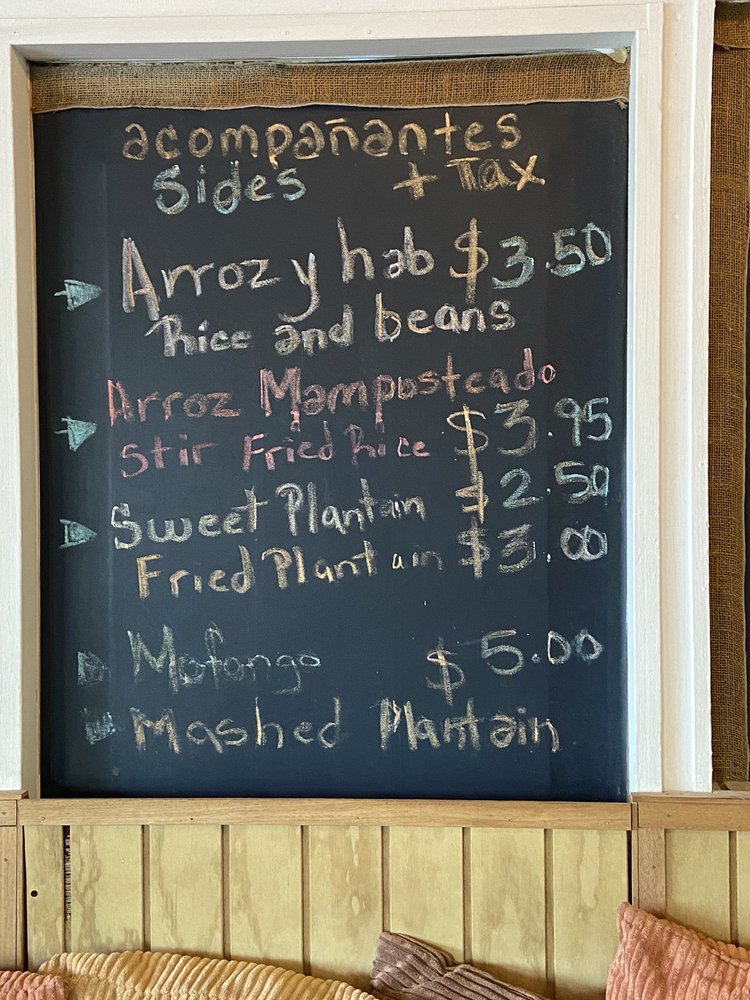 acompañantes
Sides + Tax
Arroz y hab $3.50
Rice and beans
Arroz Mamposteado
Stir Fried Rice $3.95
Sweet Plantain $2.50
Fried Plantain $3.00
Mofongo $5.00
Mashed Plantain